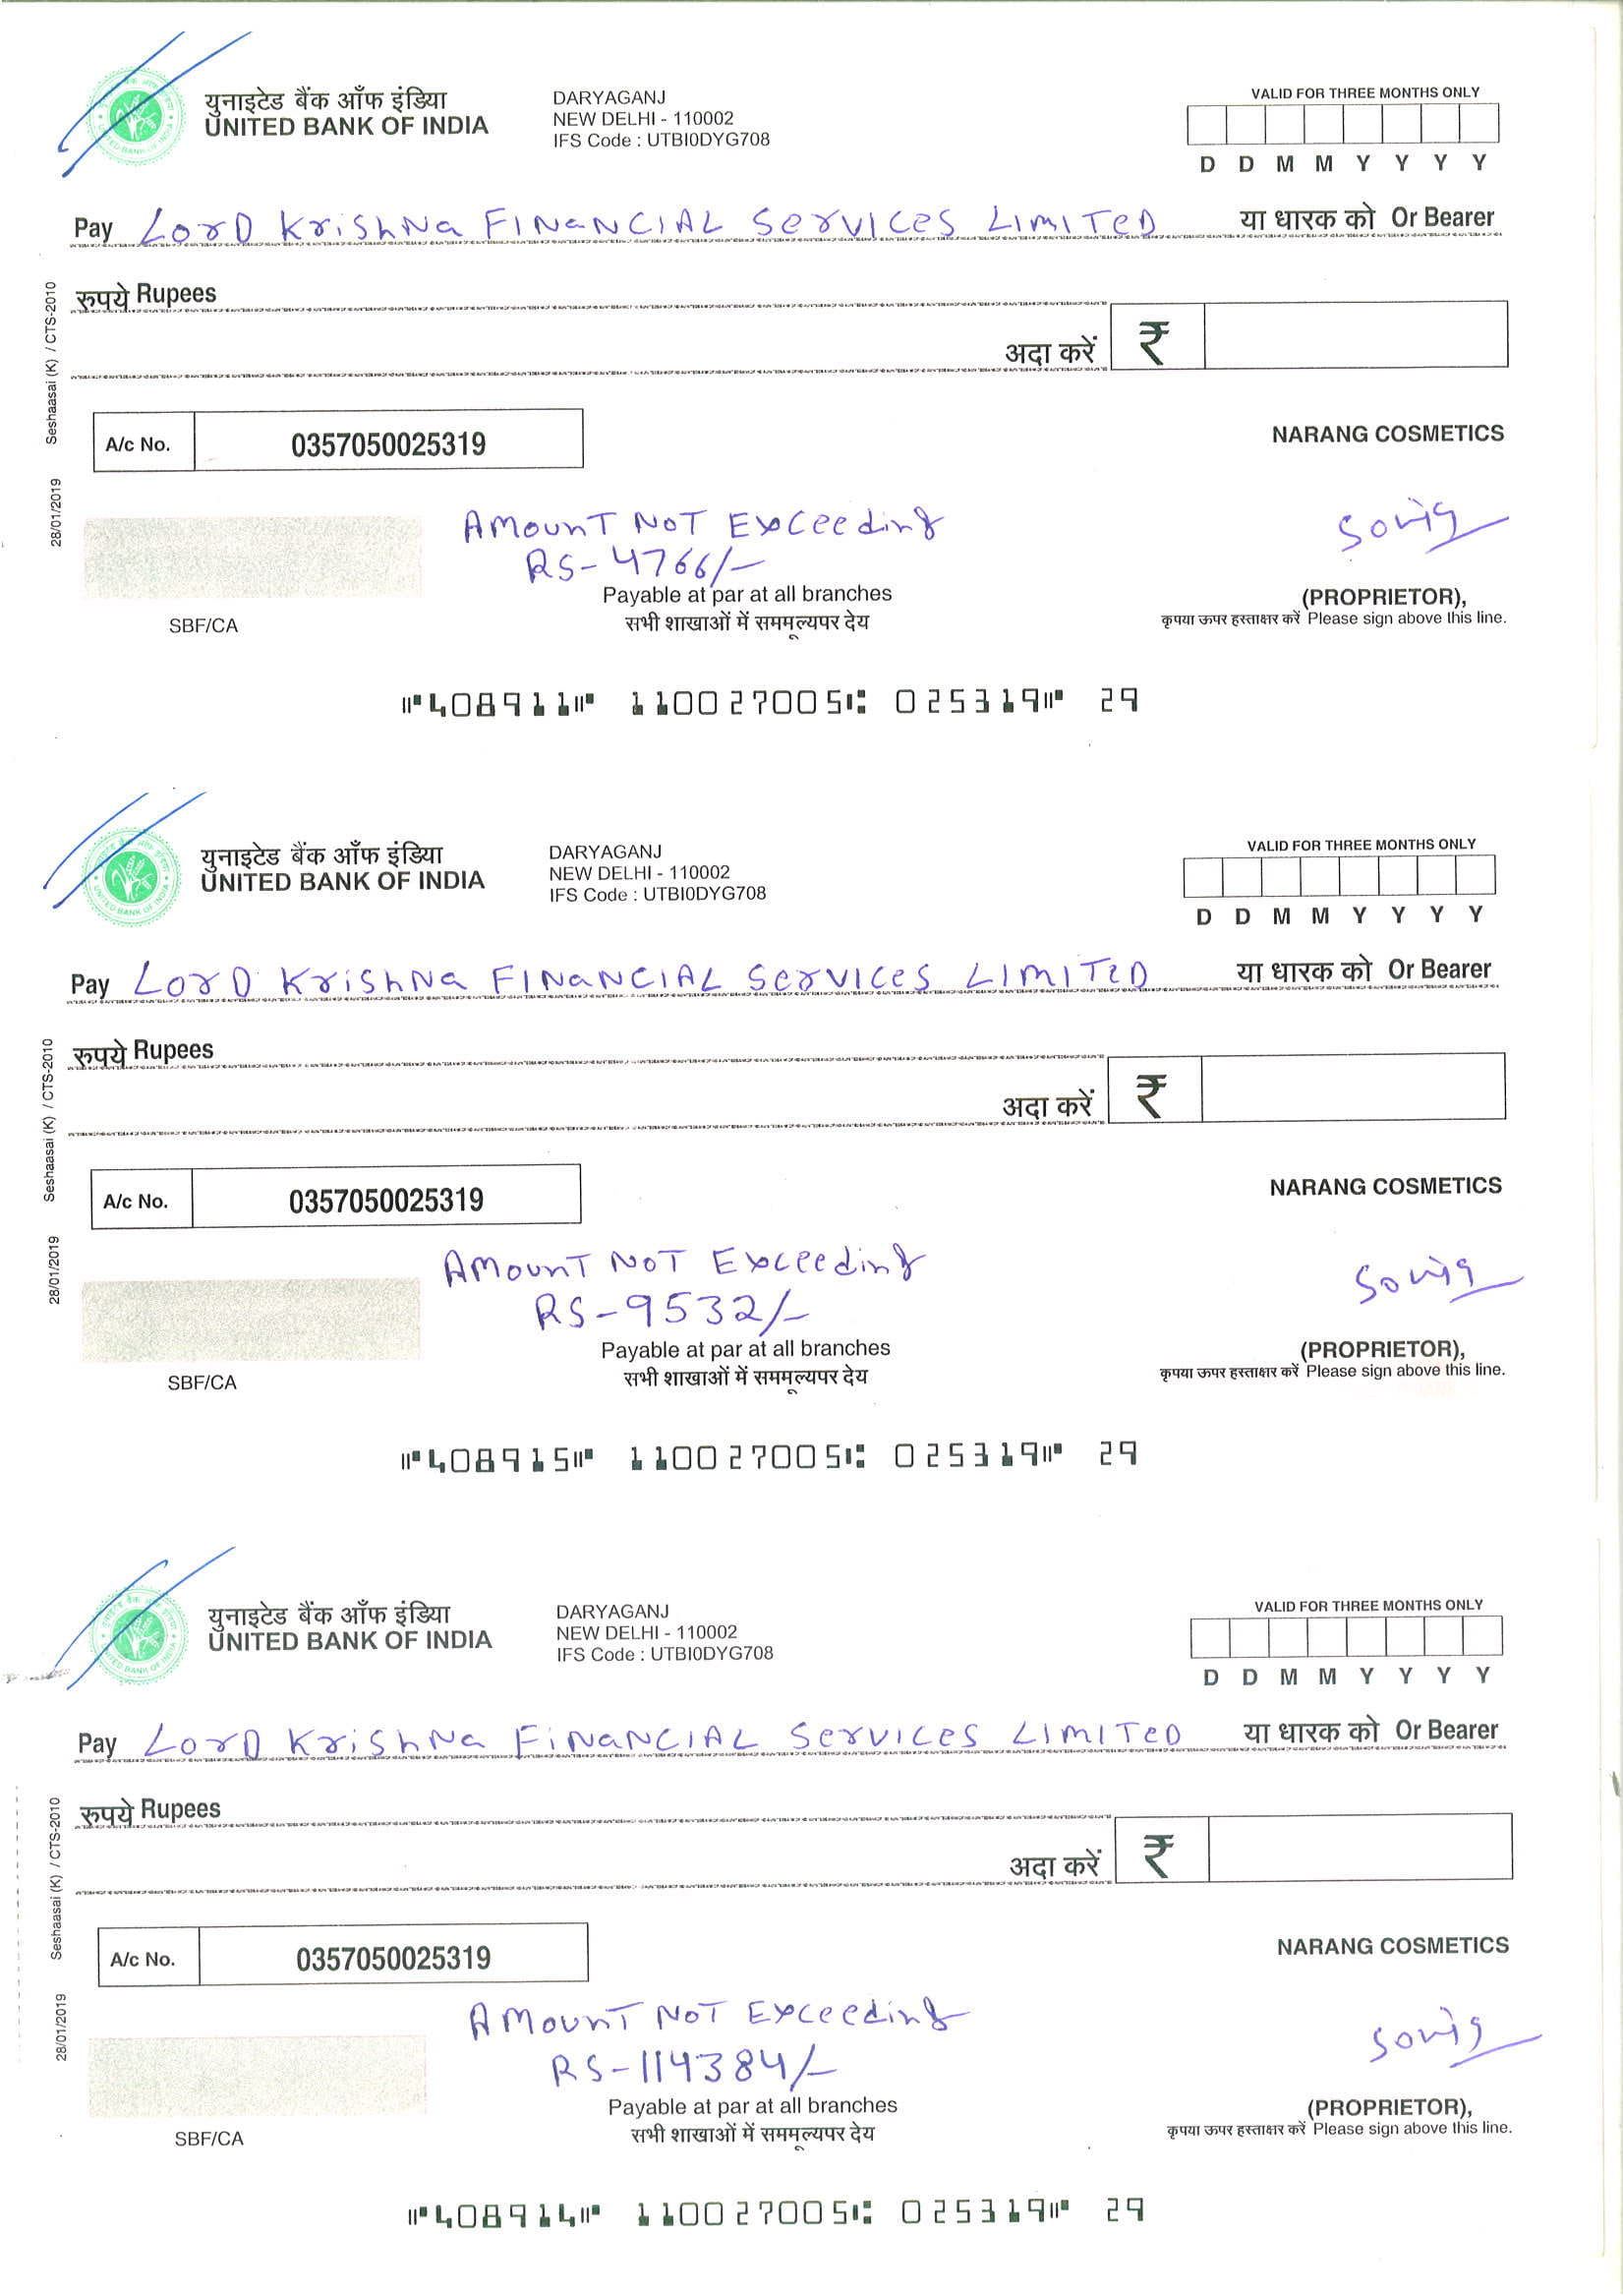 युनाइटेड बैंक ऑफ इंडिया
UNITED BANK OF INDIA
DARYAGANJ
NEW DELHI - 110002
IFS Code : UTBI0DYG708
VALID FOR THREE MONTHS ONLY
D D M M Y Y Y Y
Pay LorD KriShNa FINaNCIAL SerVICeS LIMITeD या धारक को Or Bearer
रुपये Rupees
अदा करें ₹
Seshaasai (K) / CTS-2010
A/c No. 0357050025319
NARANG COSMETICS
28/01/2019
AMounT NoT Exceeding
RS-4766/-
Payable at par at all branches
सभी शाखाओं में सममूल्यपर देय
SBF/CA
(PROPRIETOR),
कृपया ऊपर हस्ताक्षर करें Please sign above this line.
408911 110027005 025319 29
युनाइटेड बैंक ऑफ इंडिया
UNITED BANK OF INDIA
DARYAGANJ
NEW DELHI - 110002
IFS Code : UTBI0DYG708
VALID FOR THREE MONTHS ONLY
D D M M Y Y Y Y
Pay LorD KriShNa FINaNCIAL SerVICeS LIMITeD या धारक को Or Bearer
रुपये Rupees
अदा करें ₹
Seshaasai (K) / CTS-2010
A/c No. 0357050025319
NARANG COSMETICS
28/01/2019
AMounT NoT Exceeding
RS-9532/-
Payable at par at all branches
सभी शाखाओं में सममूल्यपर देय
SBF/CA
(PROPRIETOR),
कृपया ऊपर हस्ताक्षर करें Please sign above this line.
408915 110027005 025319 29
युनाइटेड बैंक ऑफ इंडिया
UNITED BANK OF INDIA
DARYAGANJ
NEW DELHI - 110002
IFS Code : UTBI0DYG708
VALID FOR THREE MONTHS ONLY
D D M M Y Y Y Y
Pay LorD KriShNa FiNaNCIAL SerVICeS LIMITeD या धारक को Or Bearer
रुपये Rupees
अदा करें ₹
Seshaasai (K) / CTS-2010
A/c No. 0357050025319
NARANG COSMETICS
28/01/2019
AMounT NoT Exceeding
RS-114384/-
Payable at par at all branches
सभी शाखाओं में सममूल्यपर देय
SBF/CA
(PROPRIETOR),
कृपया ऊपर हस्ताक्षर करें Please sign above this line.
408914 110027005 025319 29